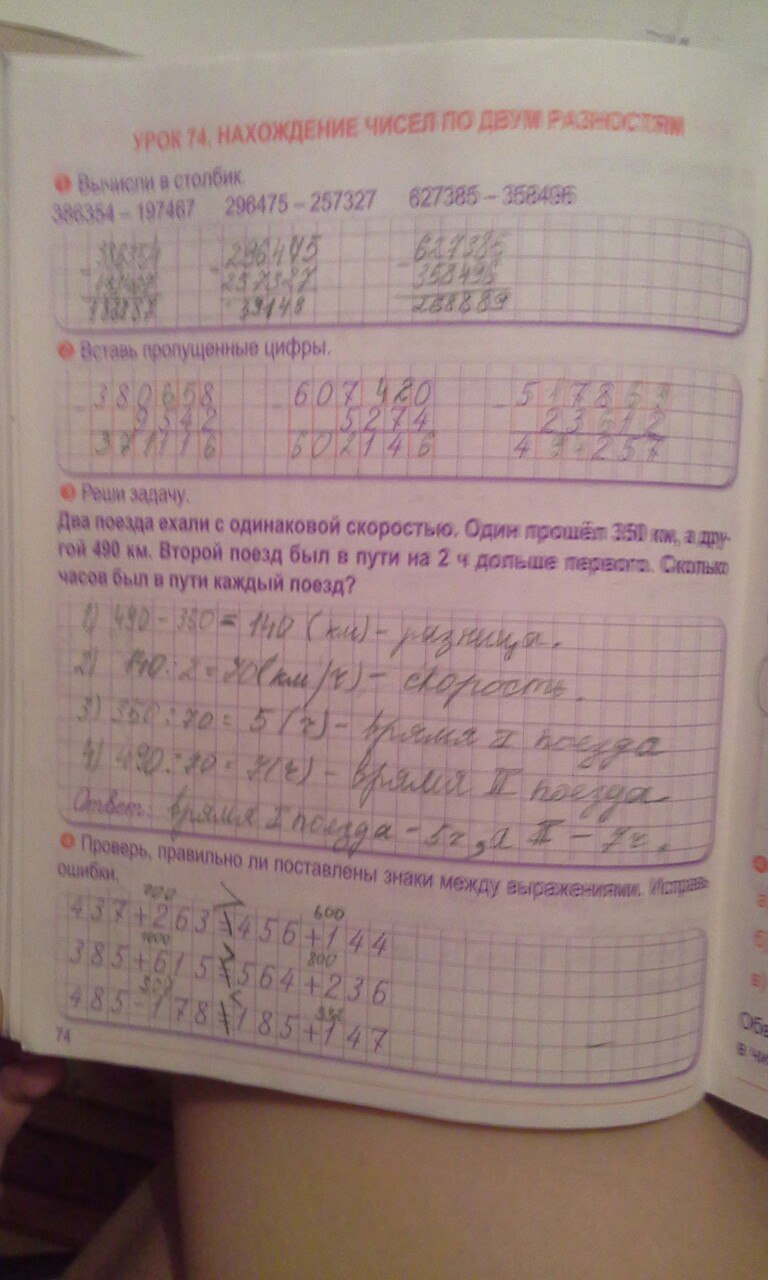 УРОК 74. НАХОЖДЕНИЕ ЧИСЕЛ ПО ДВУМ РАЗНОСТЯМ
1 Вычисли в столбик.
386354 – 197467 296475 – 257327 627385 – 358496
296475 627385
257327 358496
39148 268889
2 Вставь пропущенные цифры.
- 380658 - 607420 - 517869
9542 5274 23612
371116 602146 494257
3 Реши задачу.
Два поезда ехали с одинаковой скоростью. Один прошёл 350 км, а дру-
гой 490 км. Второй поезд был в пути на 2 ч дольше первого. Сколько
часов был в пути каждый поезд?
1) 490 - 350 = 140 (км) - разница.
2) 140 : 2 = 70 (км/ч) - скорость.
3) 350 : 70 = 5 (ч) - врямя I поезда
4) 490 : 70 = 7 (ч) - врямя II поезда.
Ответ: врямя I поезда - 5ч, а II - 7ч.
4 Проверь, правильно ли поставлены знаки между выражениями. Исправь
ошибки.
700 > 600
437+263=456+144
1000 > 800
385+615=564+236
307 < 332
485-178=185+147
74
Обв
в чи